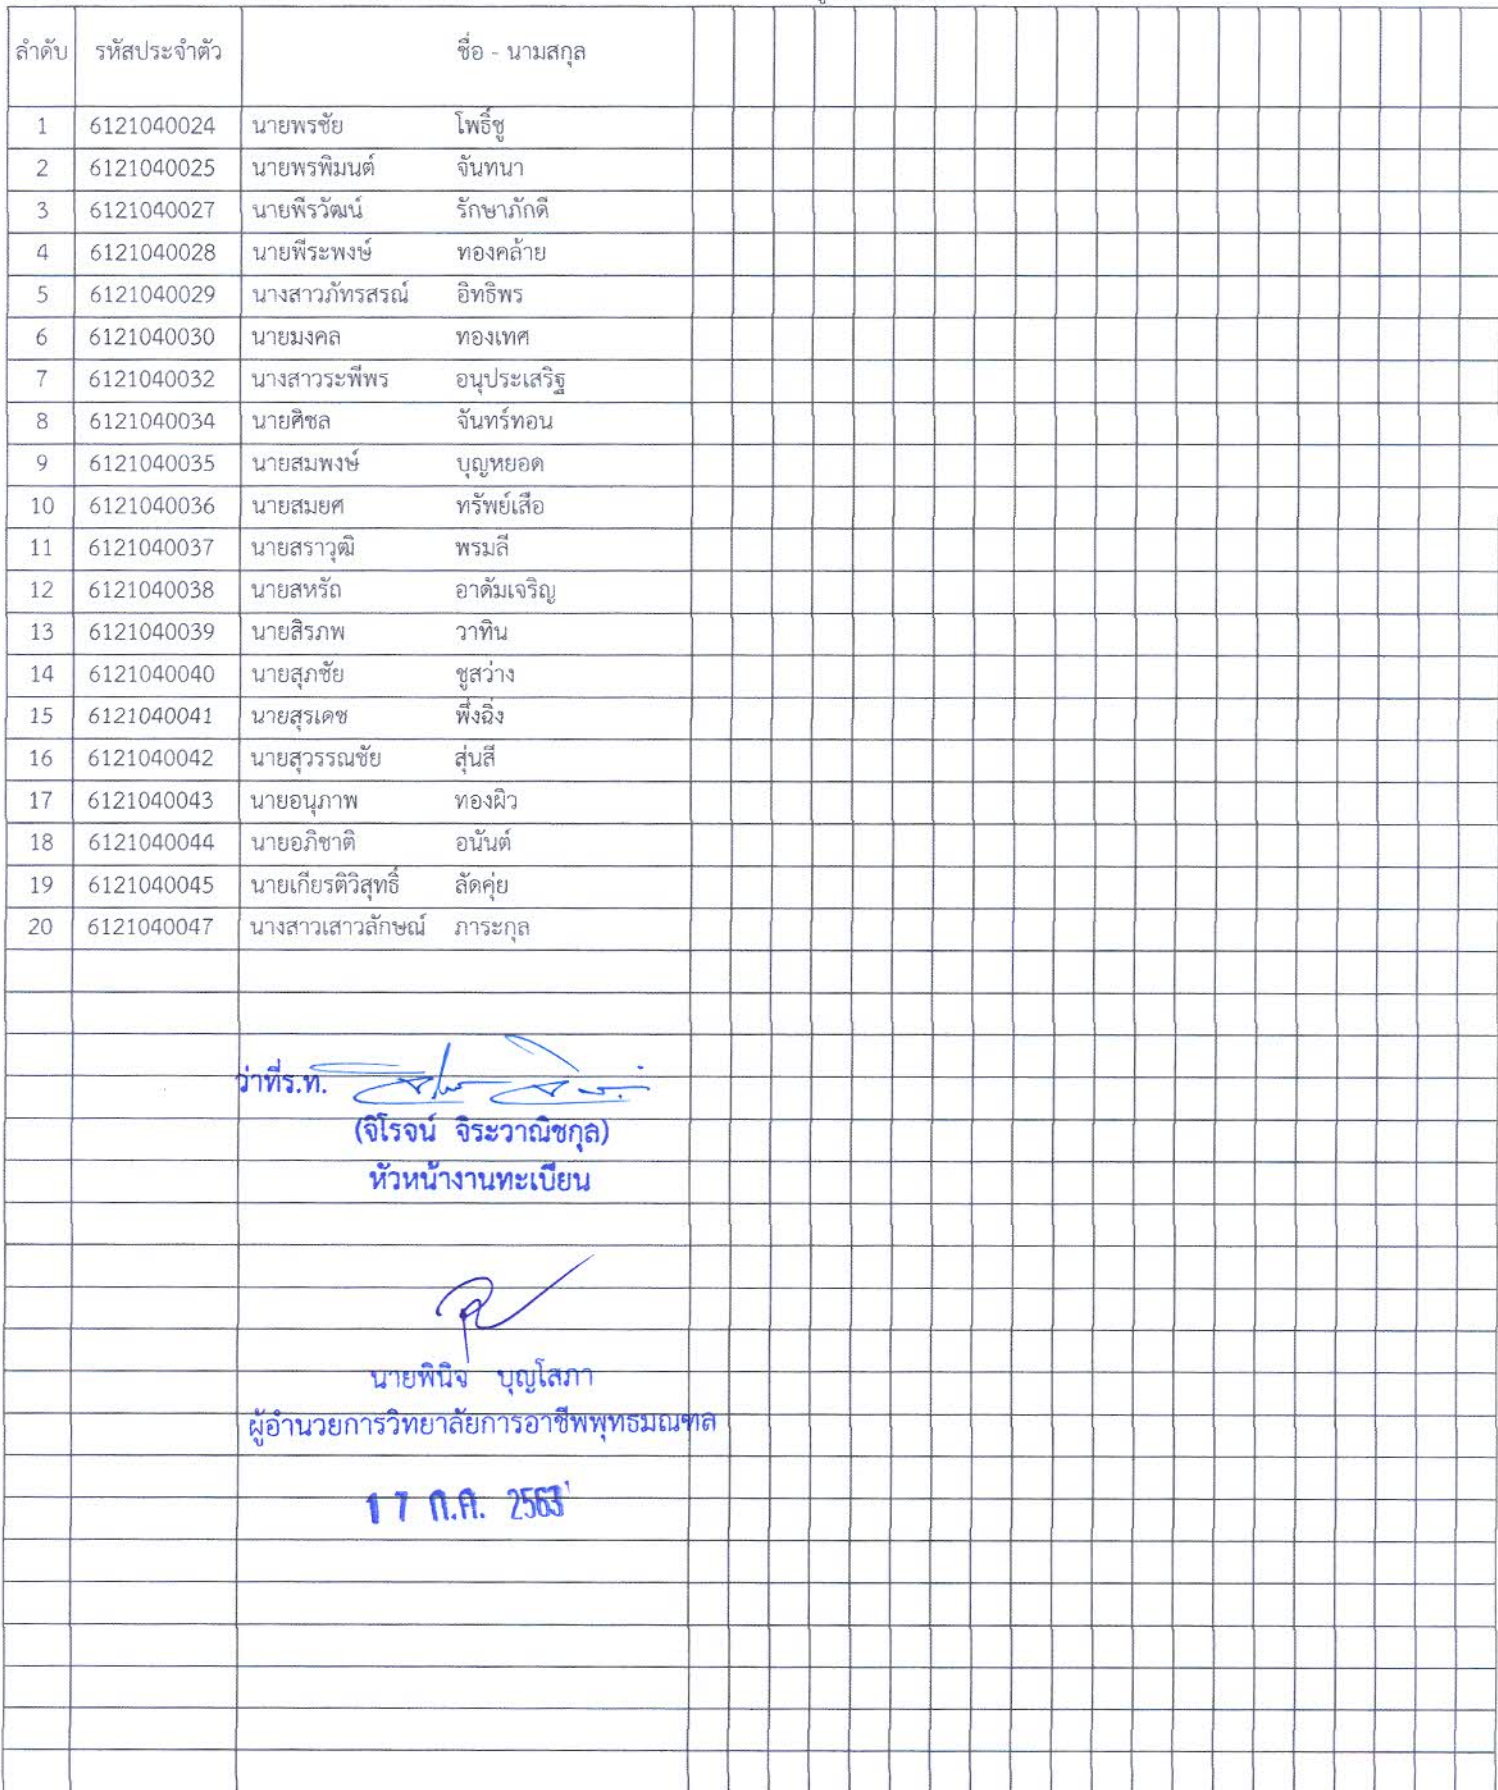 ลำดับ รหัสประจำตัว ชื่อ - นามสกุล
1 6121040024 นายพรชัย โพธิ์ชู
2 6121040025 นายพรพิมนต์ จันทนา
3 6121040027 นายพีรวัฒน์ รักษาภักดี
4 6121040028 นายพีระพงษ์ ทองคล้าย
5 6121040029 นางสาวภัทรสรณ์ อิทธิพร
6 6121040030 นายมงคล ทองเทศ
7 6121040032 นางสาวระพีพร อนุประเสริฐ
8 6121040034 นายศิชล จันทร์ทอน
9 6121040035 นายสมพงษ์ บุญหยอด
10 6121040036 นายสมยศ ทรัพย์เสือ
11 6121040037 นายสราวุฒิ พรมลี
12 6121040038 นายสหรัถ อาดัมเจริญ
13 6121040039 นายสิรภพ วาทิน
14 6121040040 นายสุภชัย ชูสว่าง
15 6121040041 นายสุรเดช พึ่งฉิ่ง
16 6121040042 นายสุวรรณชัย สุ่นสี
17 6121040043 นายอนุภาพ ทองผิว
18 6121040044 นายอภิชาติ อนันต์
19 6121040045 นายเกียรติวิสุทธิ์ ลัดคุ่ย
20 6121040047 นางสาวเสาวลักษณ์ ภาระกุล
ว่าที่ร.ท.
(จิโรจน์ จิระวาณิชกุล)
หัวหน้างานทะเบียน
นายพินิจ บุญโสภา
ผู้อำนวยการวิทยาลัยการอาชีพพุทธมณฑล
17 ก.ค. 2563